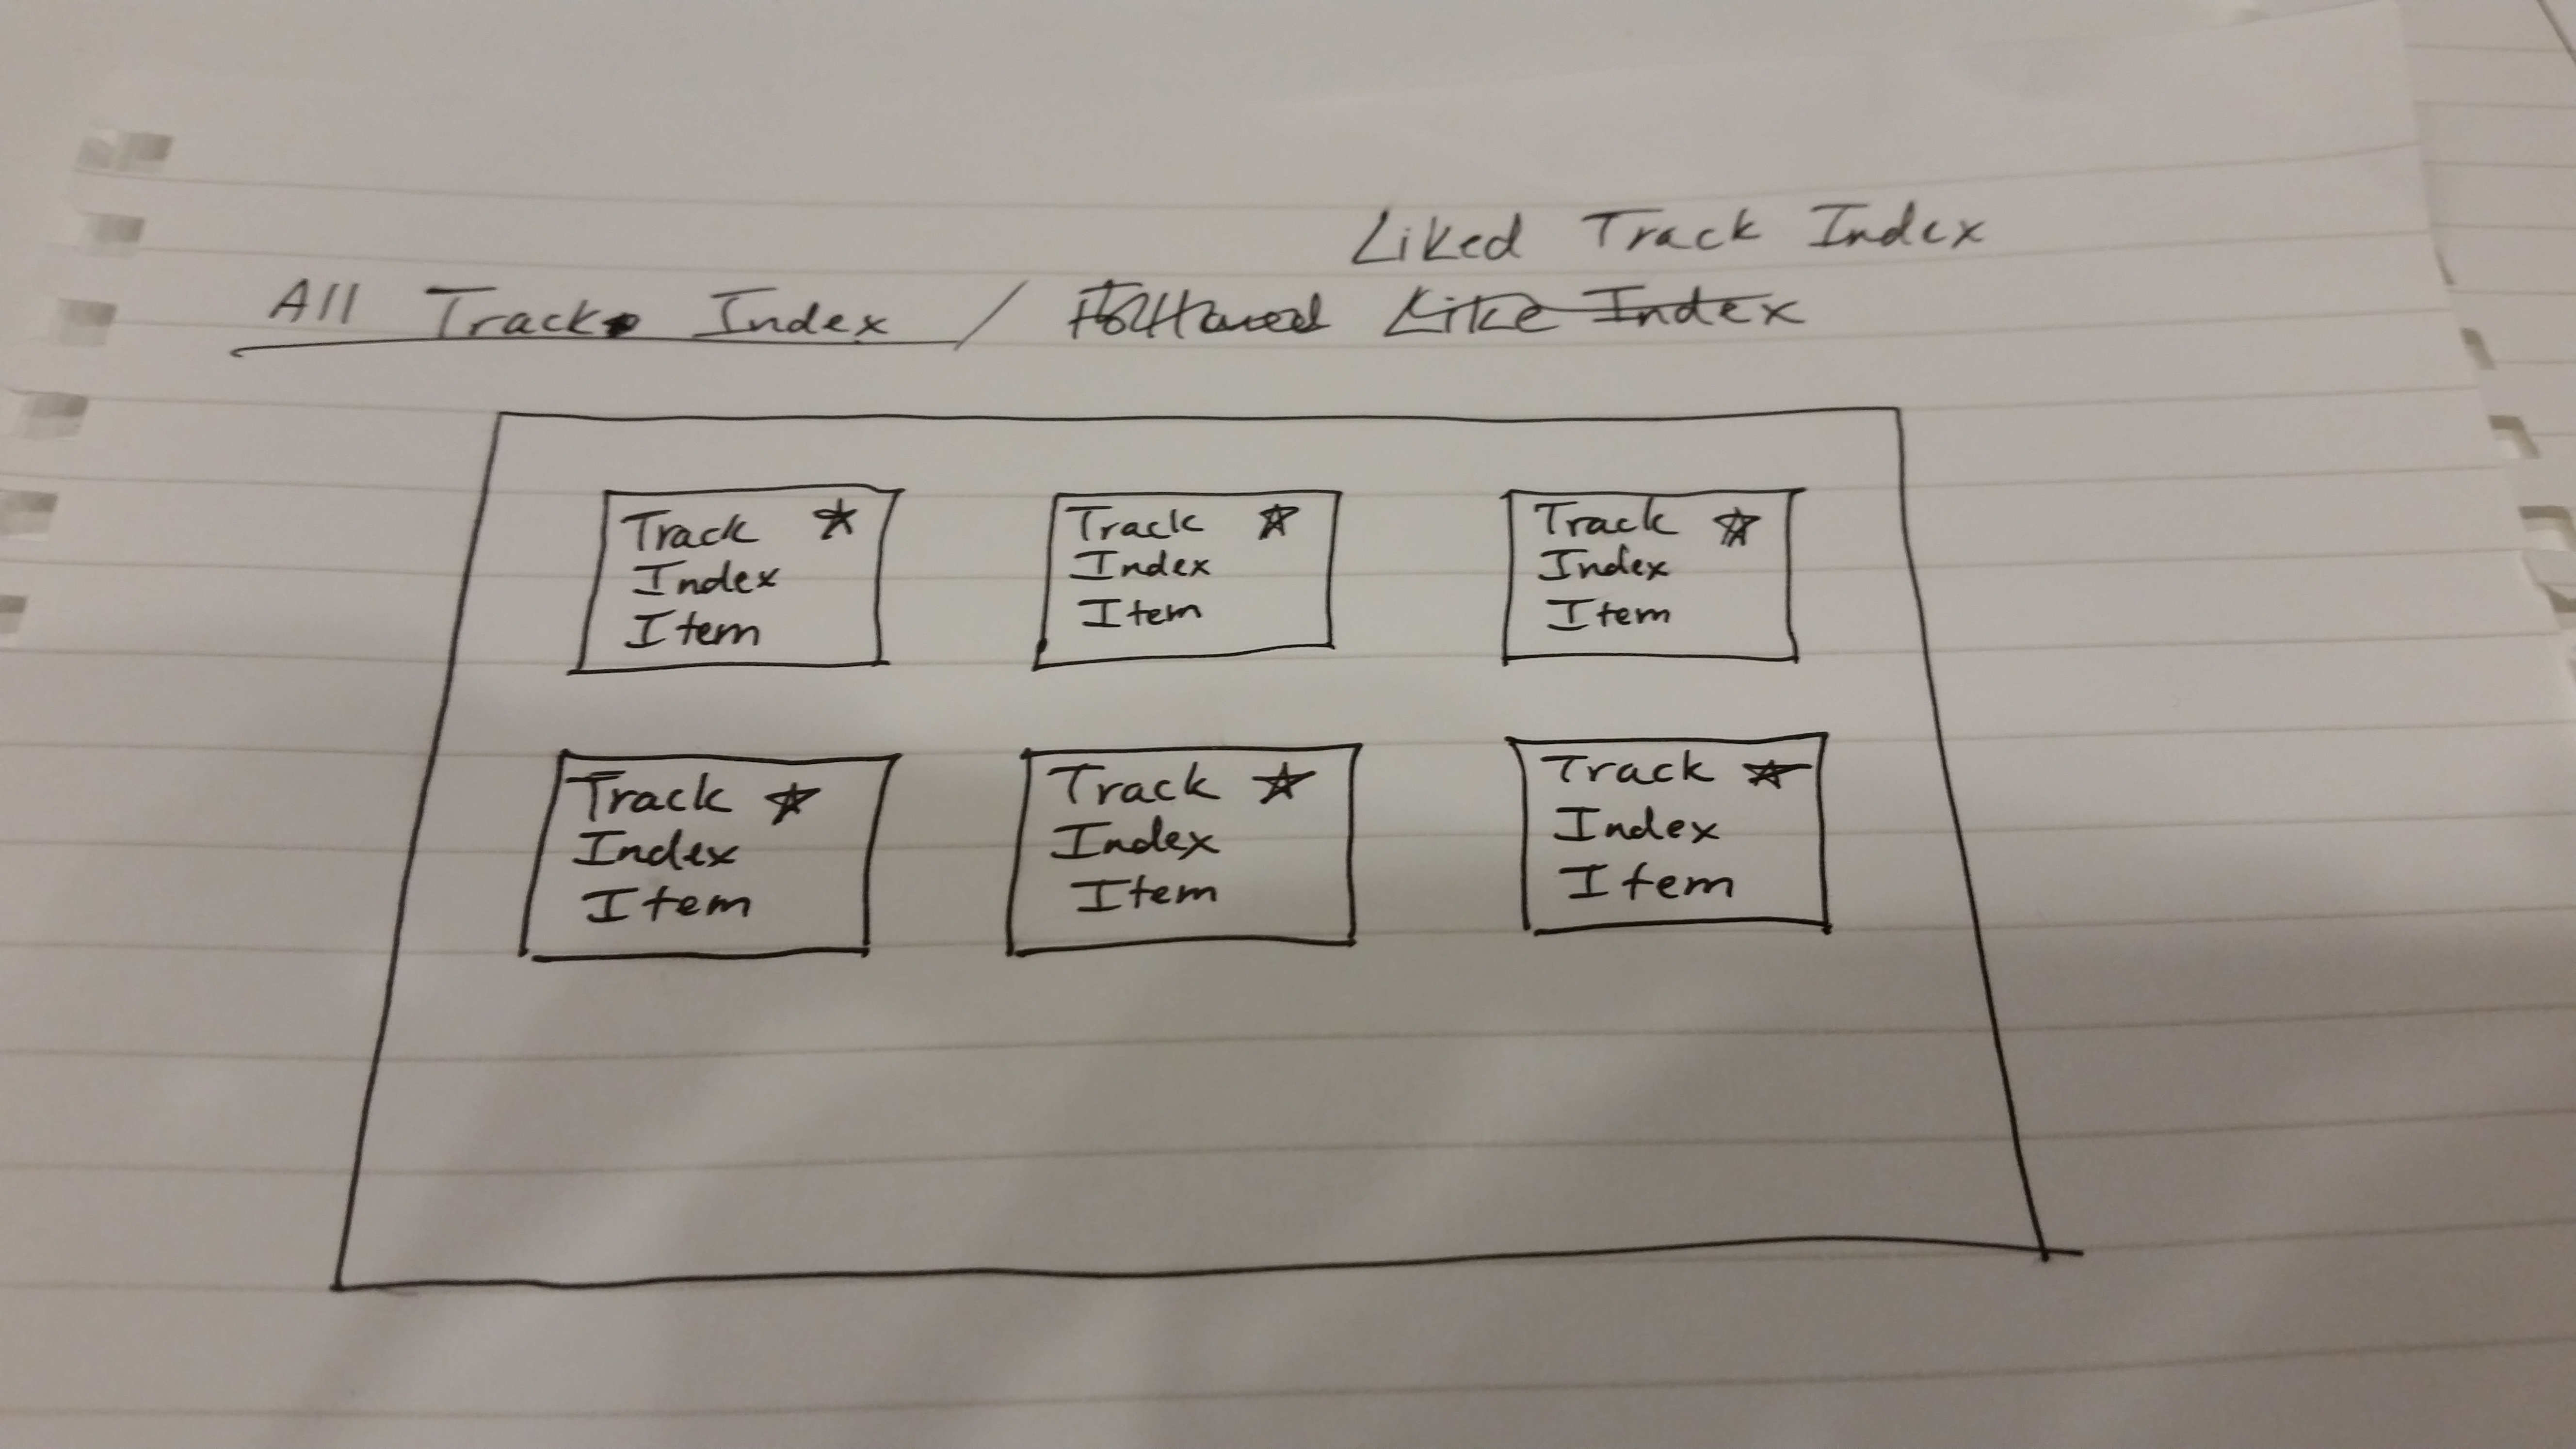 Liked Track Index
All Track Index / Followed Like Index
Track ☆
Index
Item
Track ☆
Index
Item
Track ☆
Index
Item
Track ☆
Index
Item
Track ☆
Index
Item
Track ☆
Index
Item